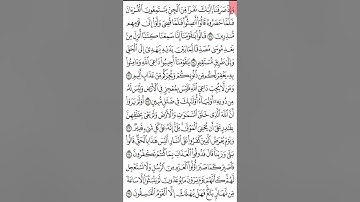 وَإِذْ صَرَفْنَآ إِلَيْكَ نَفَرًا مِّنَ ٱلْجِنِّ يَسْتَمِعُونَ ٱلْقُرْءَانَ
فَلَمَّا حَضَرُوهُ قَالُوٓا۟ أَنصِتُوا۟ فَلَمَّا قُضِىَ وَلَّوْا۟ إِلَىٰ قَوْمِهِم
مُّنذِرِينَ ٢٩ قَالُوا۟ يَٰقَوْمَنَآ إِنَّا سَمِعْنَا كِتَٰبًا أُنزِلَ مِنۢ
بَعْدِ مُوسَىٰ مُصَدِّقًا لِّمَا بَيْنَ يَدَيْهِ يَهْدِىٓ إِلَى ٱلْحَقِّ
وَإِلَىٰ طَرِيقٍ مُّسْتَقِيمٍ ٣٠ يَٰقَوْمَنَآ أَجِيبُوا۟ دَاعِىَ ٱللَّهِ وَءَامِنُوا۟
بِهِۦ يَغْفِرْ لَكُم مِّن ذُنُوبِكُمْ وَيُجِرْكُم مِّنْ عَذَابٍ أَلِيمٍ ٣١
وَمَن لَّا يُجِبْ دَاعِىَ ٱللَّهِ فَلَيْسَ بِمُعْجِزٍ فِى ٱلْأَرْضِ وَلَيْسَ لَهُۥ
مِن دُونِهِۦٓ أَوْلِيَآءُ أُو۟لَٰٓئِكَ فِى ضَلَٰلٍ مُّبِينٍ ٣٢ أَوَلَمْ يَرَوْا۟
أَنَّ ٱللَّهَ ٱلَّذِى خَلَقَ ٱلسَّمَٰوَٰتِ وَٱلْأَرْضَ وَلَمْ يَعْىَ بِخَلْقِهِنَّ
بِقَٰدِرٍ عَلَىٰٓ أَن يُحْۦِىَ ٱلْمَوْتَىٰ بَلَىٰٓ إِنَّهُۥ عَلَىٰ كُلِّ شَىْءٍ قَدِيرٌ ٣٣
وَيَوْمَ يُعْرَضُ ٱلَّذِينَ كَفَرُوا۟ عَلَى ٱلنَّارِ أَلَيْسَ هَٰذَا بِٱلْحَقِّ قَالُوا۟
بَلَىٰ وَرَبِّنَا قَالَ فَذُوقُوا۟ ٱلْعَذَابَ بِمَا كُنتُمْ تَكْفُرُونَ ٣٤
فَٱصْبِرْ كَمَا صَبَرَ أُو۟لُوا۟ ٱلْعَزْمِ مِنَ ٱلرُّسُلِ وَلَا تَسْتَعْجِل
لَّهُمْ كَأَنَّهُمْ يَوْمَ يَرَوْنَ مَا يُوعَدُونَ لَمْ يَلْبَثُوٓا۟ إِلَّا سَاعَةً
مِّن نَّهَارٍۭ بَلَٰغٌ فَهَلْ يُهْلَكُ إِلَّا ٱلْقَوْمُ ٱلْفَٰسِقُونَ ٣٥